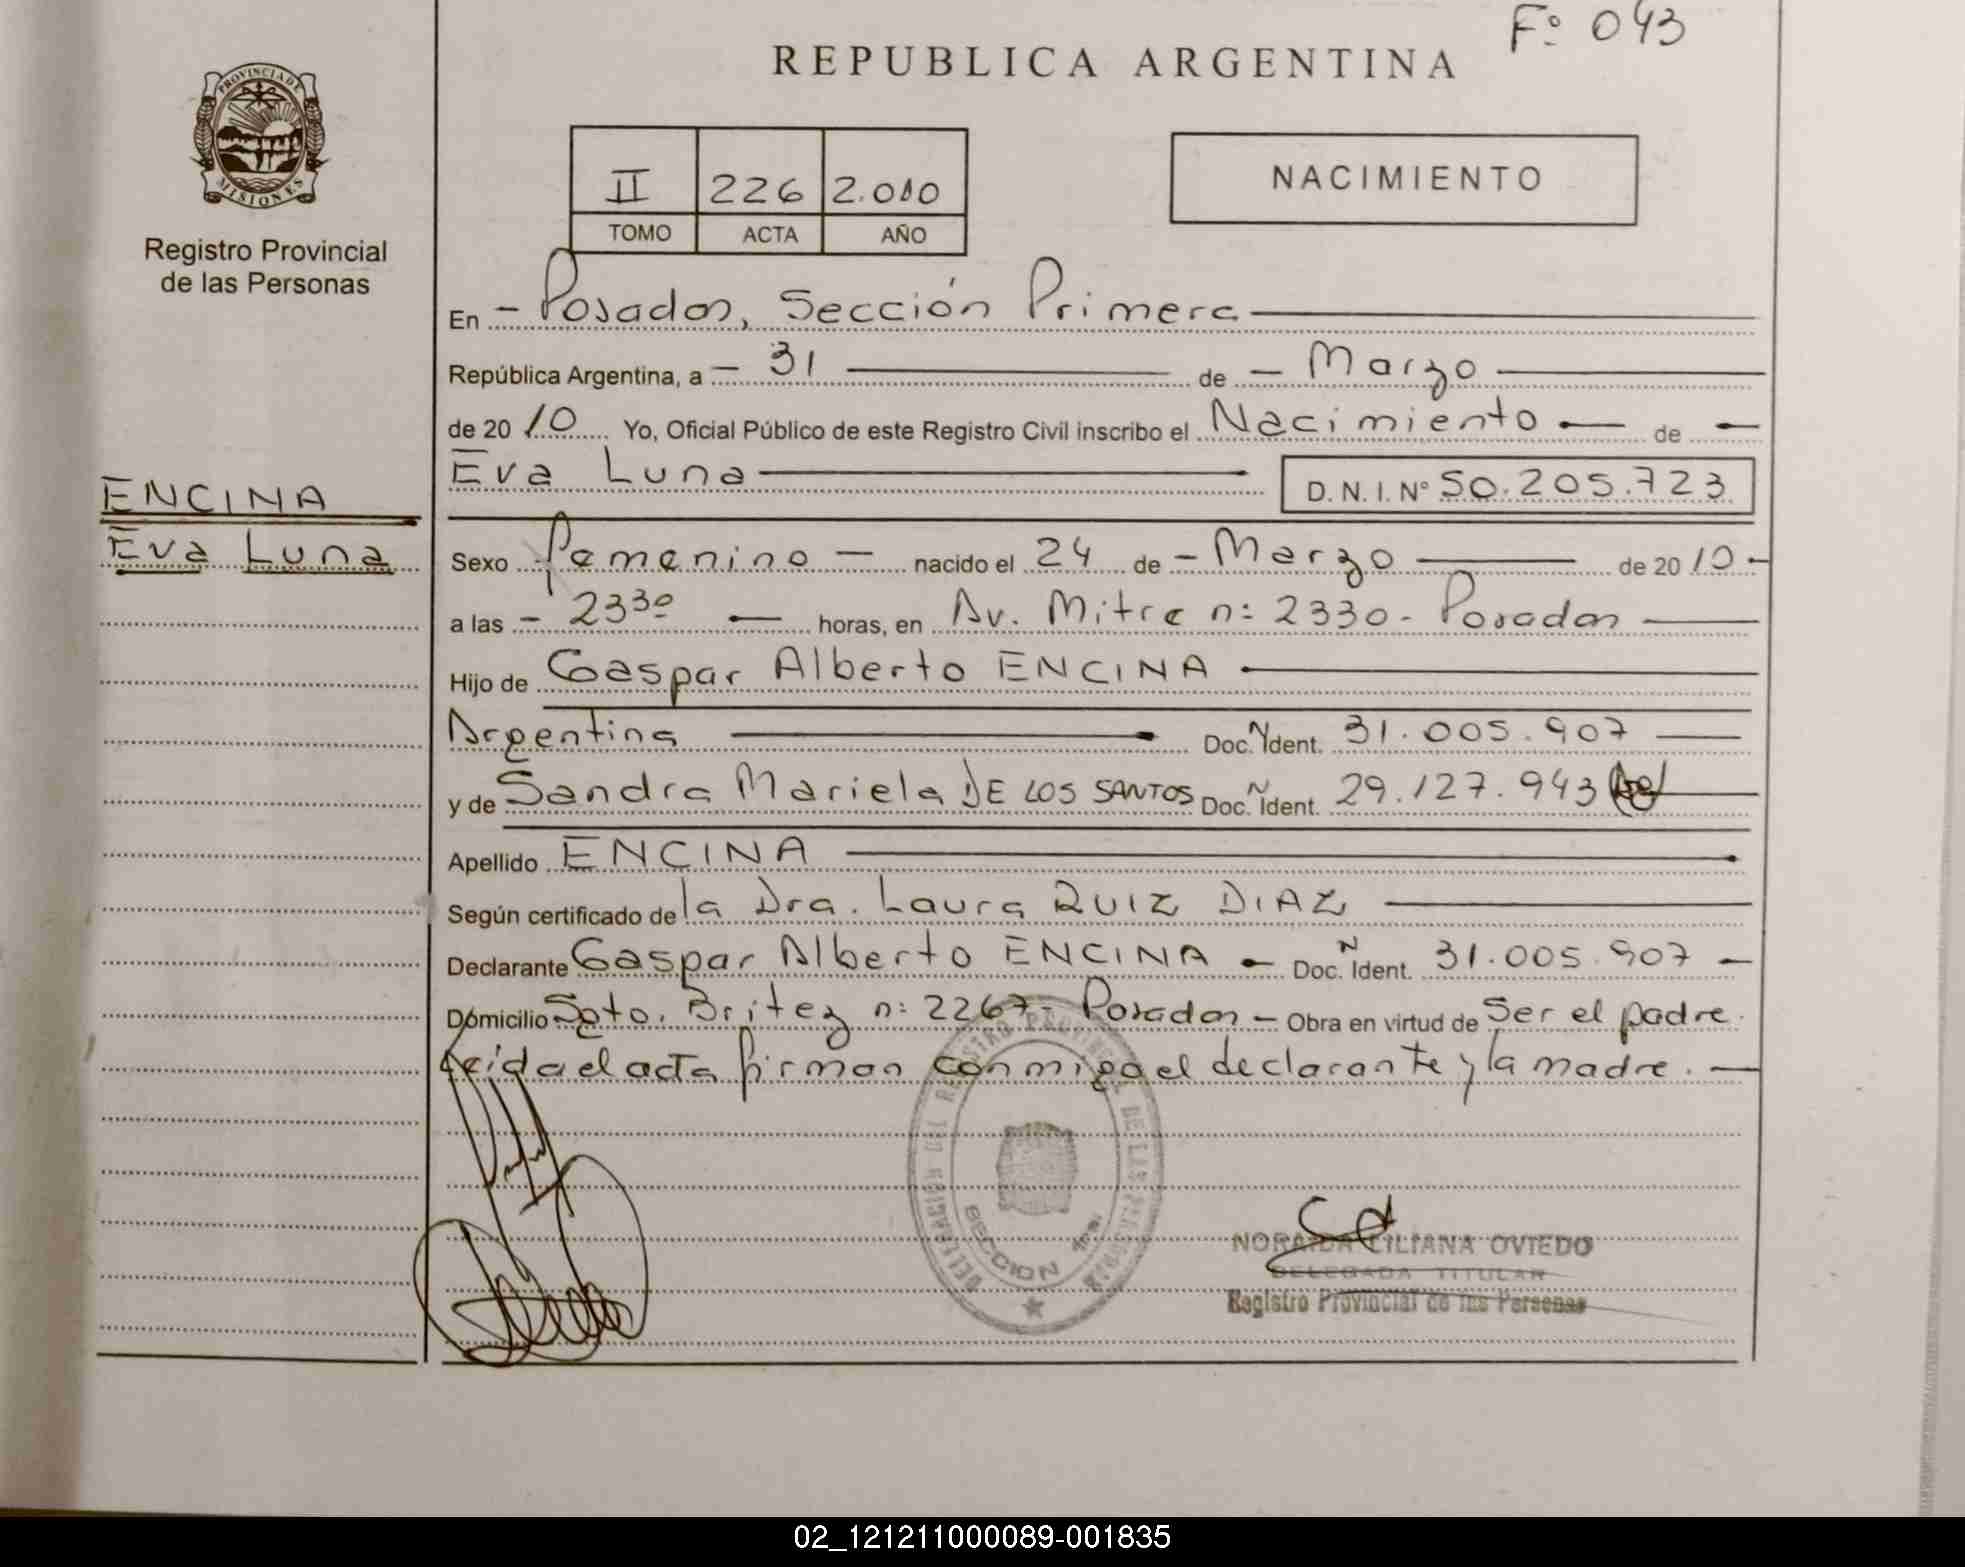 Fº 043
REPUBLICA ARGENTINA
PROVINCIA DE
MISIONES
Registro Provincial
de las Personas
II 226 2.010
TOMO ACTA AÑO
NACIMIENTO
En - Posadas, Sección Primera
República Argentina, a - 31 de - Marzo
de 20 10 Yo, Oficial Público de este Registro Civil inscribo el Nacimiento - de -
Eva Luna D. N. I. Nº 50.205.723
ENCINA
Eva Luna
Sexo Femenino - nacido el 24 de - Marzo de 20 10 -
a las - 23³⁰ - horas, en Av. Mitre n: 2330 - Posadas
Hijo de Gaspar Alberto ENCINA
Argentina Doc. N Ident. 31.005.907
y de Sandra Mariela DE LOS SANTOS Doc. N Ident. 29.127.943
Apellido ENCINA
Según certificado de la Dra. Laura RUIZ DIAZ
Declarante Gaspar Alberto ENCINA - Doc. N Ident. 31.005.907 -
Domicilio Sgto. Britez n: 2267 - Posadas - Obra en virtud de Ser el padre.
Leida el acta firman conmigo el declarante y la madre. -
DELEGACION DEL REGISTRO PROVINCIAL DE LAS PERSONAS
SECCION
NORAIDA LILIANA OVIEDO
DELEGADA TITULAR
Registro Provincial de las Personas
02_121211000089-001835